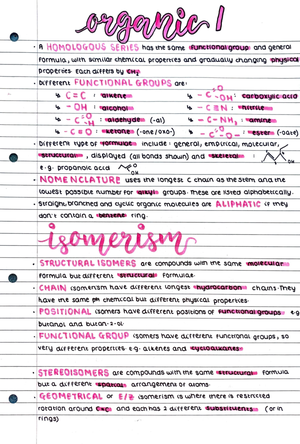 organic 1
• A HOMOLOGOUS SERIES has the same functional group and general
formula, with similar chemical properties and gradually changing physical
properties. Each differs by CH₂
• Different FUNCTIONAL GROUPS are:
↳ C=C : alkene
↳ -C=O OH : carboxylic acid
↳ -OH : alcohol
↳ -C≡N : nitrile
↳ -C=O H : aldehyde (-al)
↳ -C-NH₂ : amine
↳ -C=O : ketone (-one/oxo-)
↳ -C=O -O- : ester (-oate)
• Different type of formulae include: general, empirical, molecular,
structural, displayed (all bonds shown) and skeletal :
e.g. propanoic acid OH
• NOMENCLATURE uses the longest C chain as the stem and the
lowest possible number for alkyl groups. These are listed alphabetically.
• Straight, branched and cyclic organic molecules are ALIPHATIC if they
don't contain a benzene ring.
isomerism
• STRUCTURAL ISOMERS are compounds with the same molecular
formula but different structural formulae.
• CHAIN isomerism have different longest hydrocarbon chains. They
have the same ph chemical but different physical properties.
• POSITIONAL isomers have different positions of functional groups e.g
butanol and butan-2-ol.
• FUNCTIONAL GROUP isomers have different functional groups, so
very different properties e.g. alkenes and cycloalkanes.
• STEREOISOMERS are compounds with the same structural formula
but a different spatial arrangement of atoms.
• GEOMETRICAL or E/Z isomerism is where there is restricted
rotation around C=C and each has 2 different substituents (or in
rings)